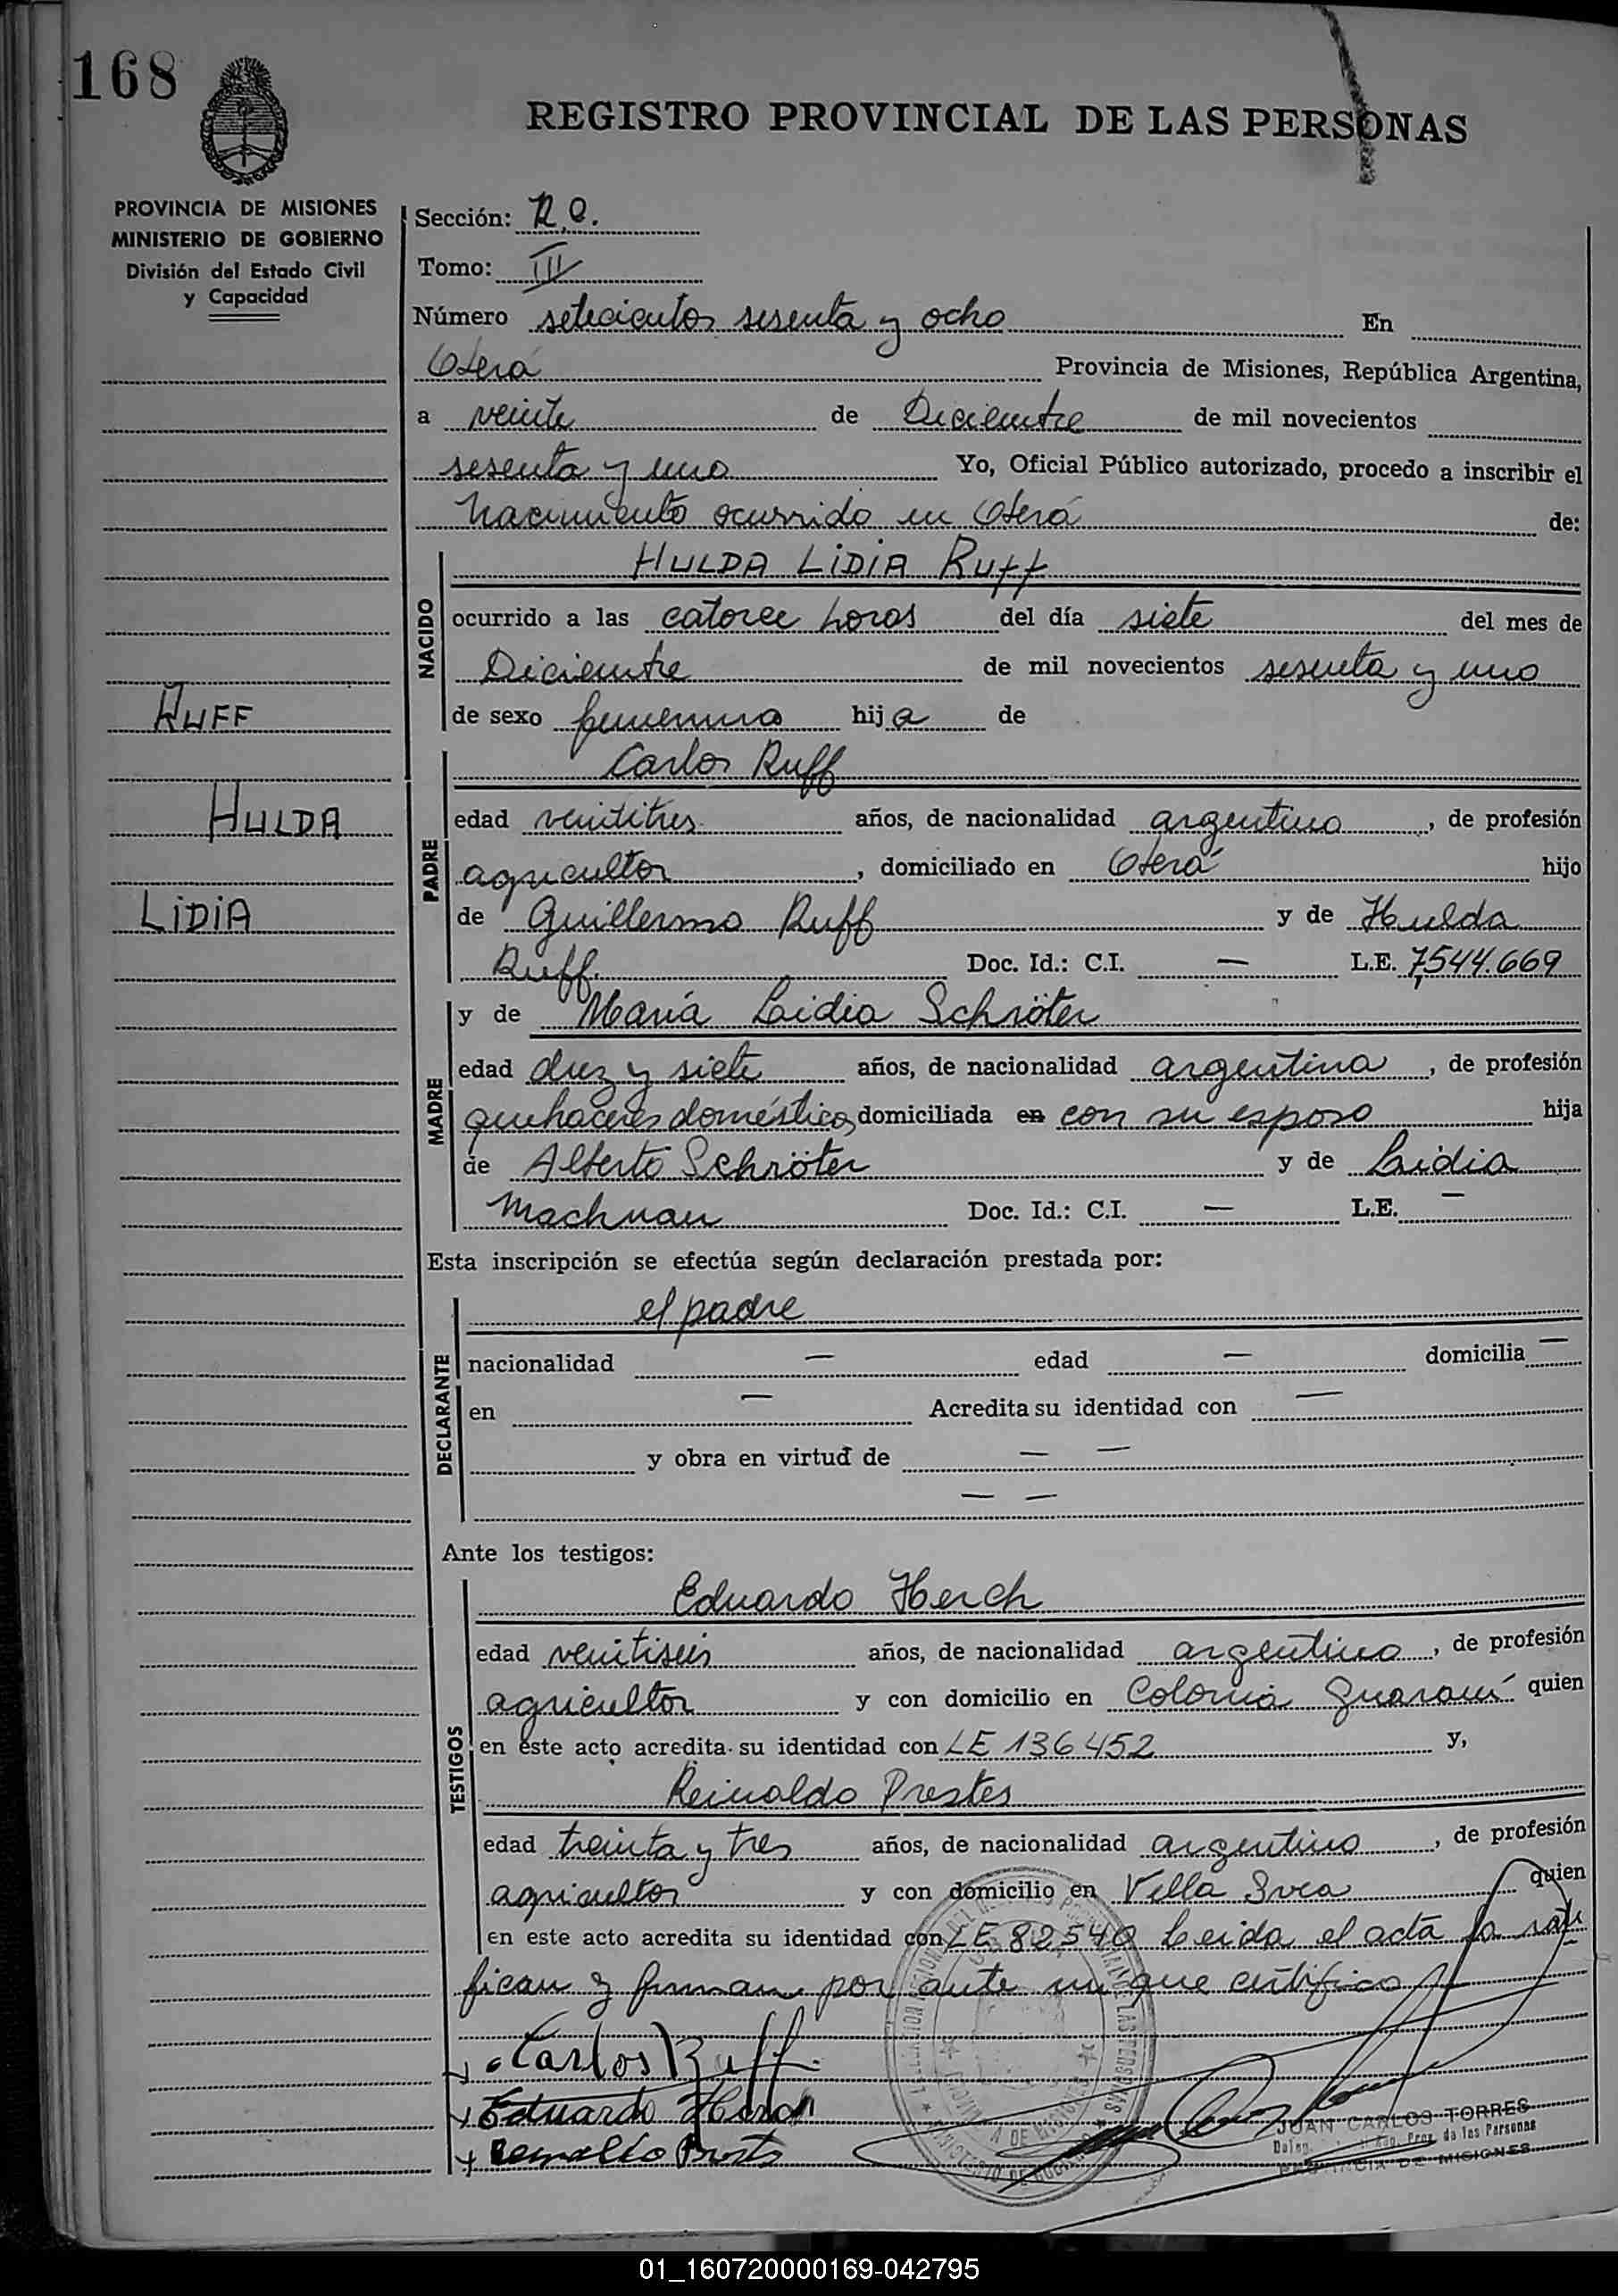 168
REGISTRO PROVINCIAL DE LAS PERSONAS
PROVINCIA DE MISIONES
MINISTERIO DE GOBIERNO
División del Estado Civil
y Capacidad
Sección: R.O.
Tomo: III
Número setecientos sesenta y ocho En
Oberá Provincia de Misiones, República Argentina,
a veinte de Diciembre de mil novecientos
sesenta y uno Yo, Oficial Público autorizado, procedo a inscribir el
Nacimiento ocurrido en Oberá de:
NACIDO
HULDA LIDIA Ruff
ocurrido a las catorce horas del día siete del mes de
Diciembre de mil novecientos sesenta y uno
de sexo femenino hija de
RUFF
HULDA
LIDIA
PADRE
Carlos Ruff
edad veintitres años, de nacionalidad argentino, de profesión
agricultor, domiciliado en Oberá hijo
de Guillermo Ruff y de Hulda
Ruff. Doc. Id.: C.I. — L.E. 7544.669
MADRE
y de María Lidia Schröter
edad diez y siete años, de nacionalidad argentina, de profesión
quehaceres domésticos domiciliada en con su esposo hija
de Alberto Schröter y de Lidia
Machnau Doc. Id.: C.I. — L.E. —
Esta inscripción se efectúa según declaración prestada por:
DECLARANTE
el padre
nacionalidad — edad — domicilia —
en — Acredita su identidad con —
y obra en virtud de — —
— —
Ante los testigos:
TESTIGOS
Eduardo Herch
edad veintiseis años, de nacionalidad argentino, de profesión
agricultor y con domicilio en Colonia Guaraní quien
en este acto acredita su identidad con LE 136452 y,
Reinaldo Prestes
edad treinta y tres años, de nacionalidad argentino, de profesión
agricultor y con domicilio en Villa Svea quien
en este acto acredita su identidad con LE 82540 Leida el acta la rati
fican y firman por ante mi que certifico
Carlos Ruff.
Eduardo Herch
Reinaldo Prestes
JUAN CARLOS TORRES
Reg. Prov. de las Personas
PROVINCIA DE MISIONES
01_160720000169-042795